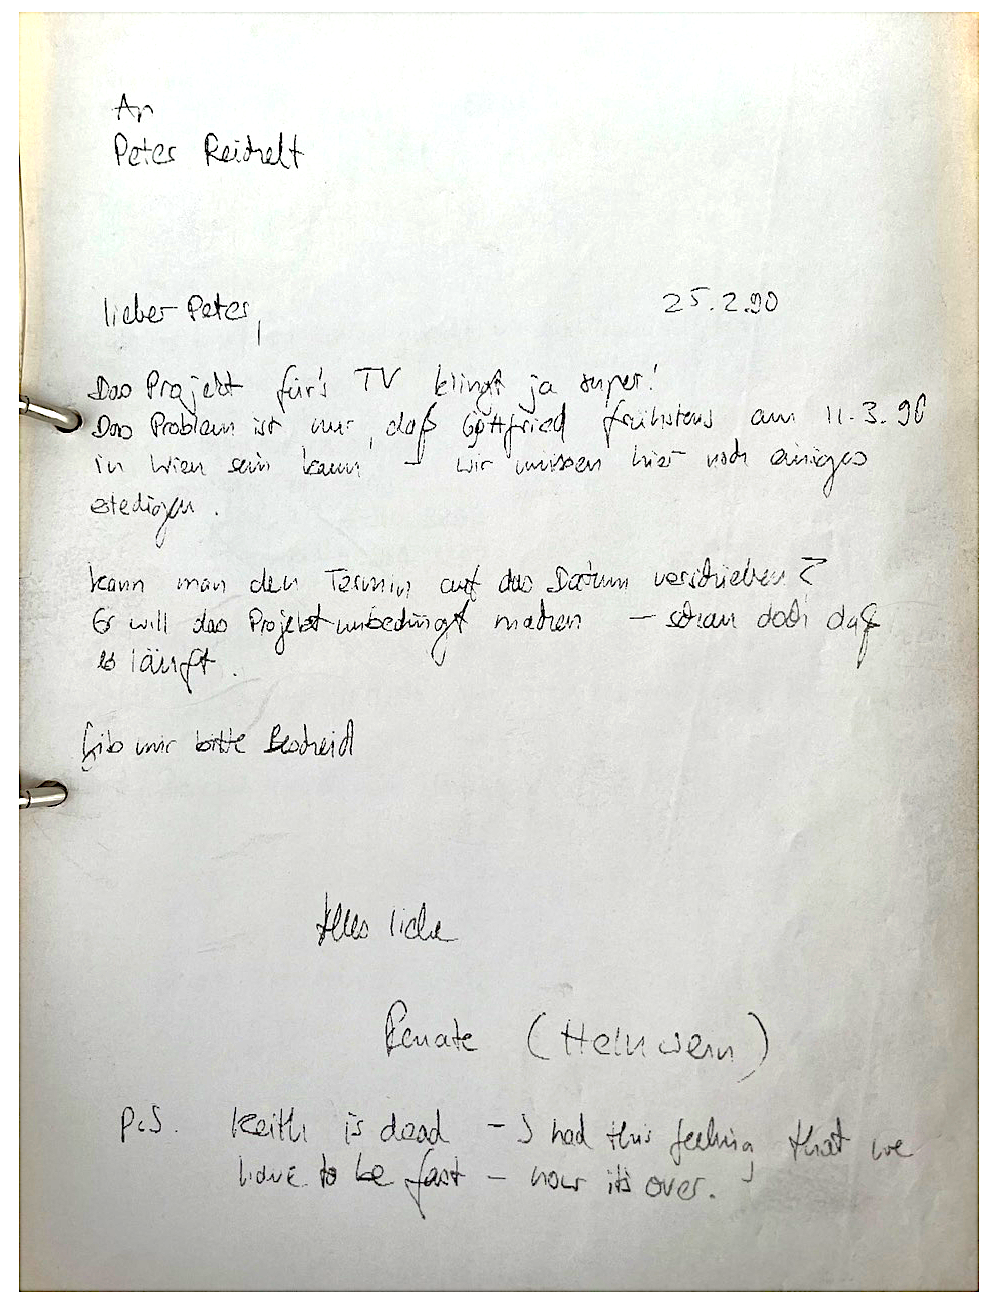 An
Peter Reichelt
25.2.90
lieber Peter,
Das Projekt für's TV klingt ja super!
Das Problem ist nur, daß Gottfried frühstens am 11.3.90
in Wien sein kann – wir müssen hier noch einiges
erledigen.
kann man den Termin auf das Datum verschieben?
Er will das Projekt unbedingt machen – schau doch daß
es läuft.
Gib mir bitte Bescheid
Alles liebe
Renate (Helnwein)
P.S. Keith is dead – I had this feeling that we
have to be fast – now it's over.